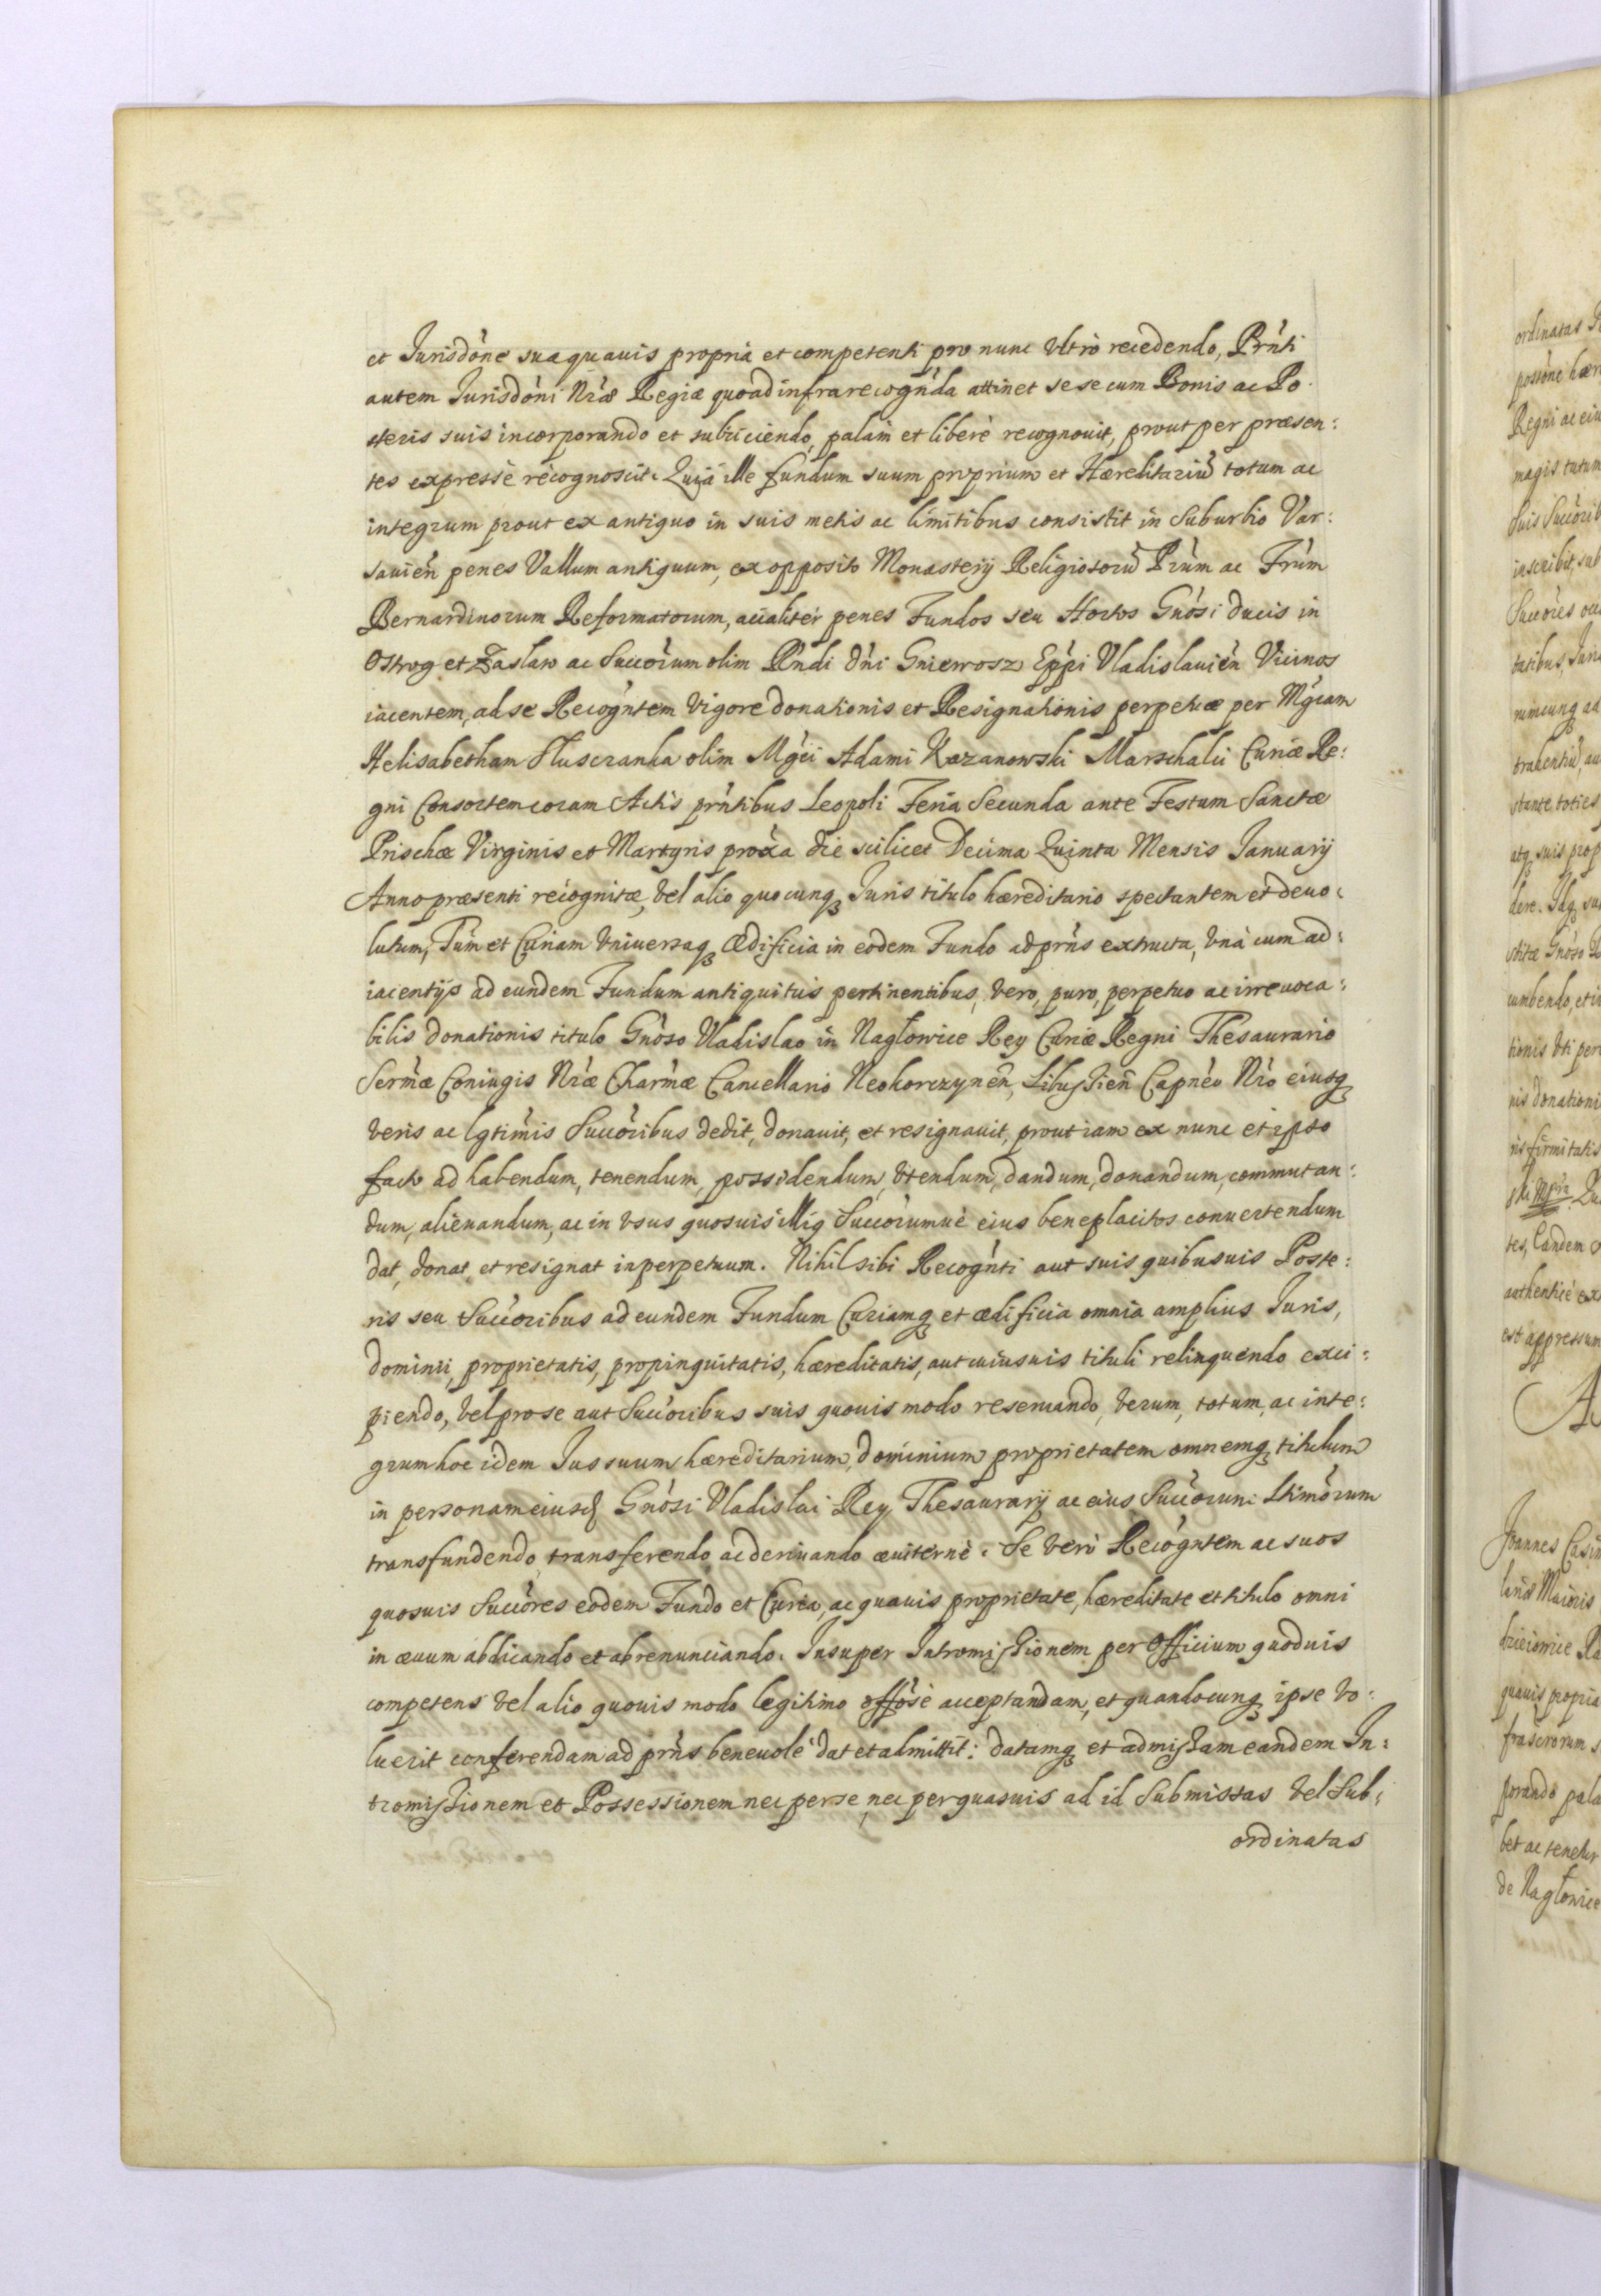 et Jurisdóne sua quauis propria et competenti pro nunc vltrò recedendo, Prńti
autem Jurisdóni Nŕæ Regiæ quoad infrarecogńda attinet sese cum Bonis ac Po:
steris suis incorporando et subijciendo, palàm et liberè recognouit, prout per præsen:
tes expressè recognoscit. Quia ille fundum suum proprium et Hæreditariũ totum ac
integrum prout ex antiquo in suis metis ac limitibus consistit in Suburbio Var:
sauień penes Vallum antiquum, ex opposito Monasterij Religiosorũ Prũm ac Frũm
Bernardinorum Reformatorum, acialiter penes Fundos seu Hortos Gnósi Ducis in
Ostrog et Zaslaw ac Succórum olim Rńdi Dńi Gniewosz Eppi Vladislauień Vicinos
iacentem, ad se Recogńtem vigore donationis et Resignationis perpetuæ per Mgcam
Helisabetham Slusczanka olim Mgci Adami Kazanowski Marschalci Curiæ Re:
gni Consortem coram Actis prńtibus Leopoli Feria Secunda ante Festum Sanctæ
Prischæ Virginis et Martyris proxã die scilicet Decima Quinta Mensis Januarij
Anno præsenti recognitæ, vel alio quocunq Juris titulo hæreditario spectantem et deuo:
lutum, Tum et Curiam vniuersaq Ædificia in eodem Fundo ad prńs extructa, vnà cum ad:
iacentijs ad eundem Fundum antiquitus pertinentibus, vero, puro, perpetuo ac irreuoca:
bilis donationis titulo Gnóso Vladislao in Nagłowice Rey Curiæ Regni Thesaurario
Sermæ Coniugis Nŕæ Charmæ Cancellario Neokorczynen, Libussień Capńeo Nŕo eiusq
veris ac lgtimis Succóribus dedit, donauit, et resignauit, prout iam ex nunc et ipso
facto ad habendum, tenendum, possidendum, vtendum, dandum, donandum, commutan:
dum, alienandum, ac in vsus quosuis illig Succórumuè eius beneplacitos conuertendum
dat, donat, et resignat in perpetuum. Nihil sibi Recogńti aut suis quibusuis Poste:
ris seu Succóribus ad eundem Fundum Curiamq et ædificia omnia amplius Juris,
dominii, proprietatis, propinquitatis, hæreditatis, aut cuiusuis tituli relinquendo exci:
piendo, vel pro se aut Succóribus suis quouis modo reseruando, verum, totum, ac inte:
grum hoc idem Jus suum hæreditarium, dominium proprietatem omnemq titulum
in personam eiusd Gnósi Vladislai Rey Thesaurarij ac eius Succórum Ltimórum
transfundendo, transferendo ac deriuando æuiternè. Se verò Recogńtem ac suos
quosuis Succóres eodem Fundo et Curia, ac quauis proprietate, hæreditate et titulo omni
in æuum abdicando et abrenunciando. Insuper Intromissionem per Officium quoduis
competens vel alio quouis modo legitimo offósè acceptandam, et quandocunq ipse vo:
luerit conferendam ad prńs beneuolè dat et admittit: datamq et admissam eandem In:
tromissionem et Possessionem nec per se, nec per quasuis ad id Submissas vel Sub:
ordinatas